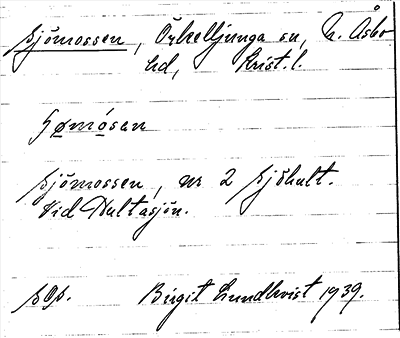 Sjömossen, Örkelljunga sn, N. Åsbo
hd, Krist. l.
Sjömossen, nr 2 Sjöhult.
Vid Hultasjön.
Birgit Lundkvist 1939.